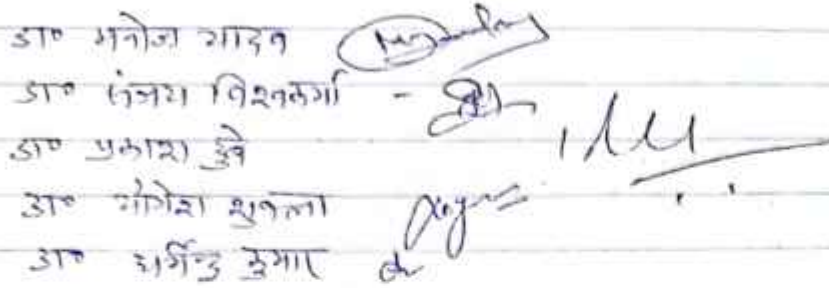 डा० मनोज यादव
डा० संजय विश्वकर्मा -
डा० प्रकाश दुबे
डा० योगेश शुक्ला
डा० धर्मेन्द्र कुमार